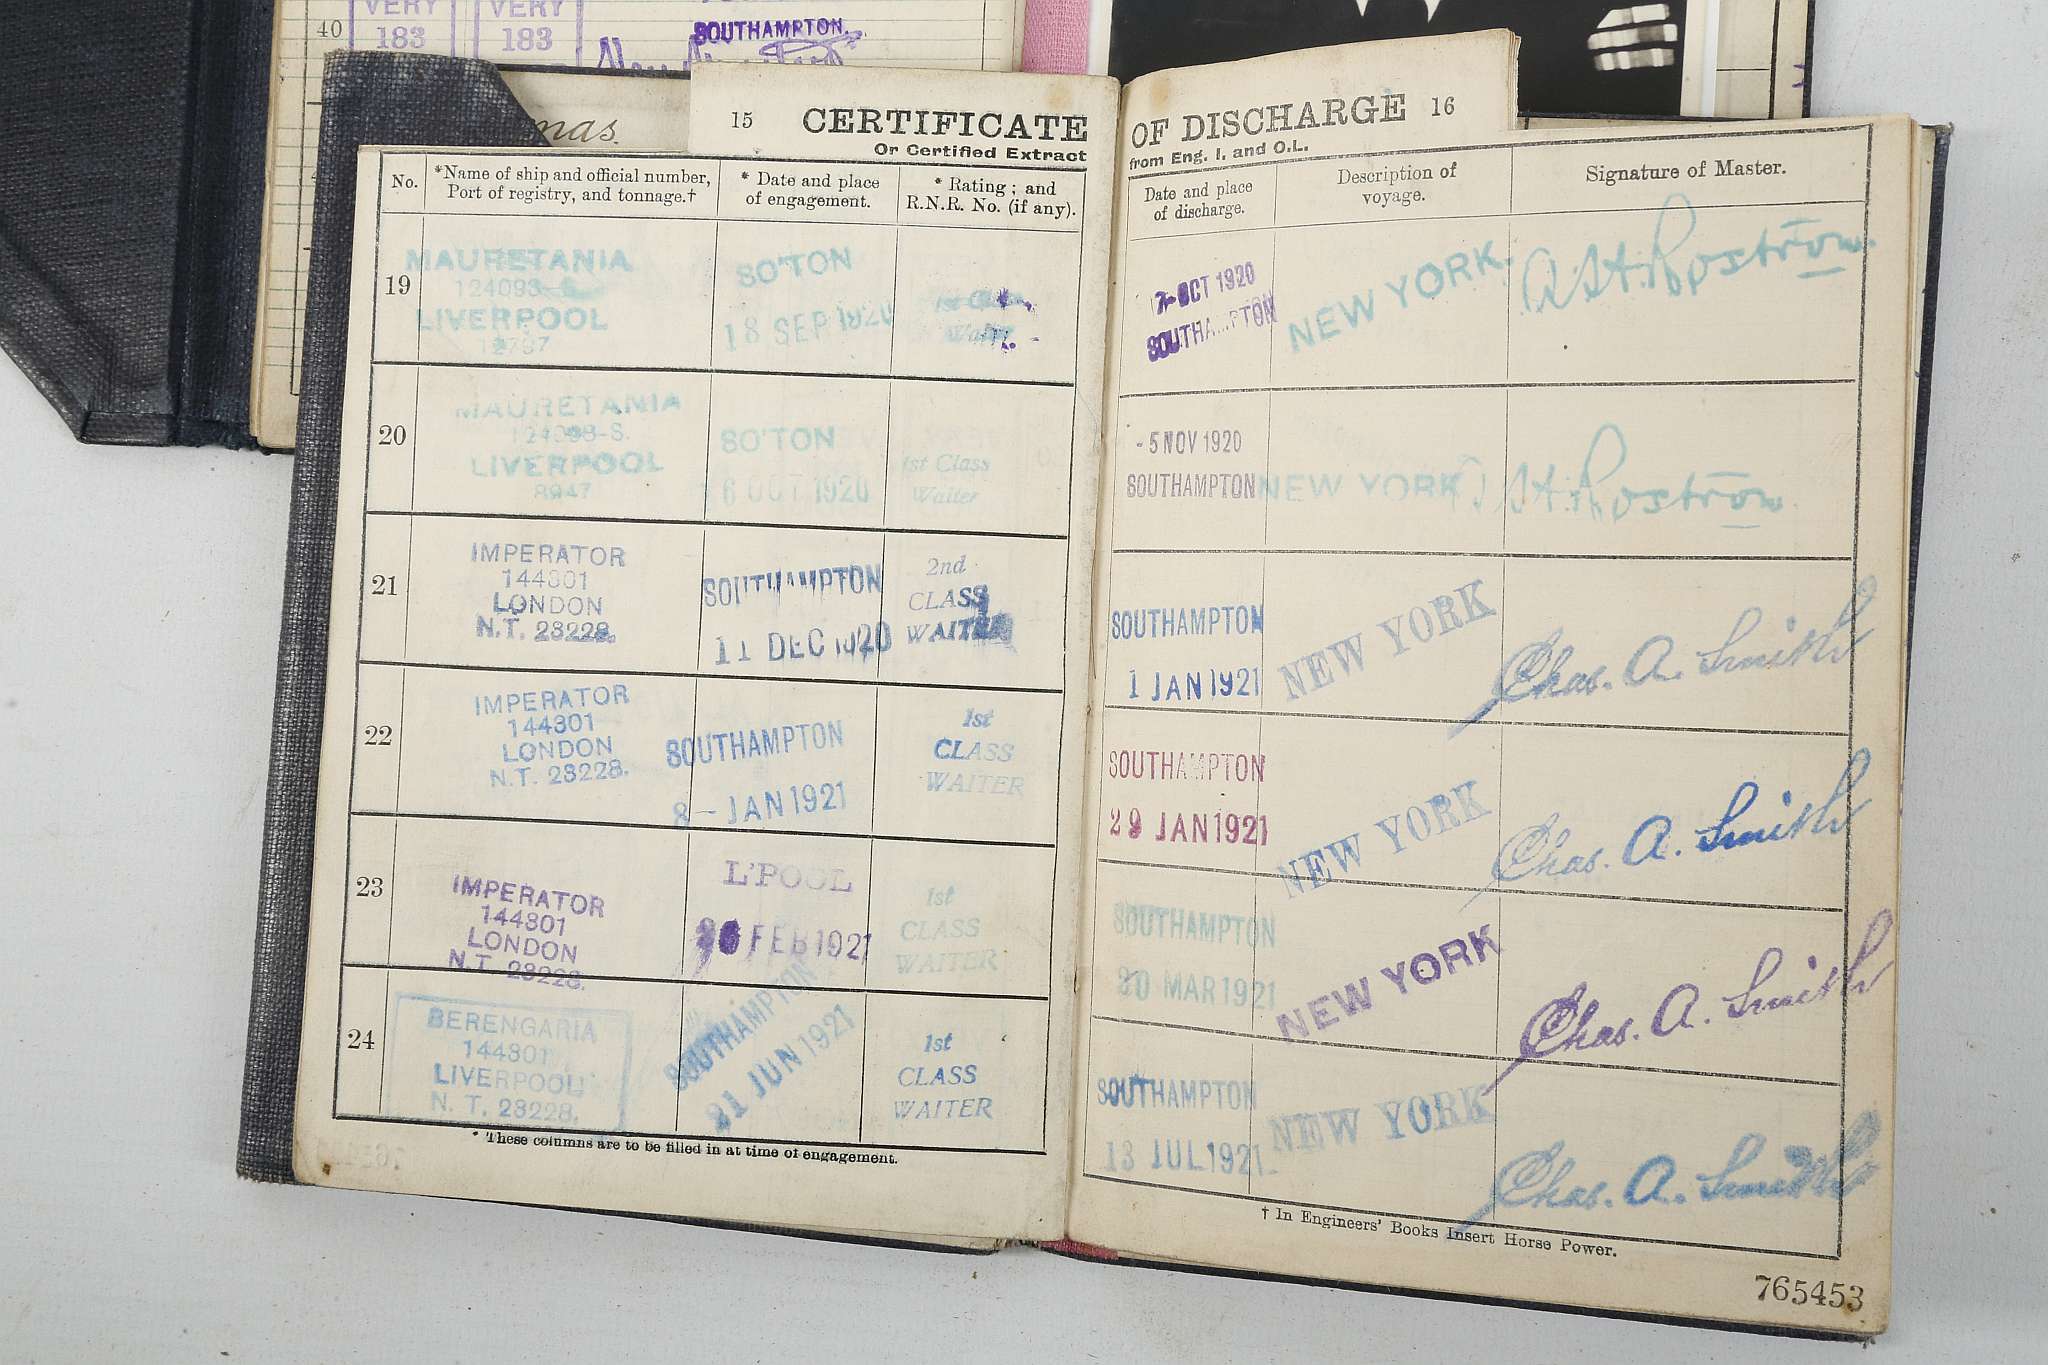 VERY
VERY
40
183
183
SOUTHAMPTON.
mas.
15
CERTIFICATE
Or Certified Extract
OF DISCHARGE
16
from Eng. 1. and O.L.
No.
*Name of ship and official number,
Port of registry, and tonnage.†
* Date and place
of engagement.
* Rating; and
R.N.R. No. (if any).
Date and place
of discharge.
Description of
voyage.
Signature of Master.
19
MAURETANIA
LIVERPOOL
12797
SO'TON
18 SEP 1920
1st Class
Waiter
7- OCT 1920
SOUTHAMPTON
NEW YORK.
A. H. Rostron
20
MAURETANIA
124093-S.
LIVERPOOL
8947
SO'TON
6 OCT 1920
1st Class
Waiter
- 5 NOV 1920
SOUTHAMPTON
NEW YORK
A H. Rostron
21
IMPERATOR
144301
LONDON
N.T. 23228.
SOUTHAMPTON
11 DEC 1920
2nd
CLASS
WAITER
SOUTHAMPTON
1 JAN 1921
NEW YORK
Chas. A. Smith
22
IMPERATOR
144301
LONDON
N.T. 23228.
SOUTHAMPTON
8 - JAN 1921
1st
CLASS
WAITER
SOUTHAMPTON
29 JAN 1921
NEW YORK
Chas. A. Smith
23
IMPERATOR
144301
LONDON
N.T. 23228.
L'POOL
FEB 1921
1st
CLASS
WAITER
SOUTHAMPTON
30 MAR 1921
NEW YORK
Chas. A. Smith
24
BERENGARIA
144301
LIVERPOOL
N. T. 23228.
SOUTHAMPTON
21 JUN 1921
1st
CLASS
WAITER
SOUTHAMPTON
13 JUL 1921
NEW YORK
Chas. A. Smith
* These columns are to be filled in at time of engagement.
† In Engineers' Books Insert Horse Power.
765453